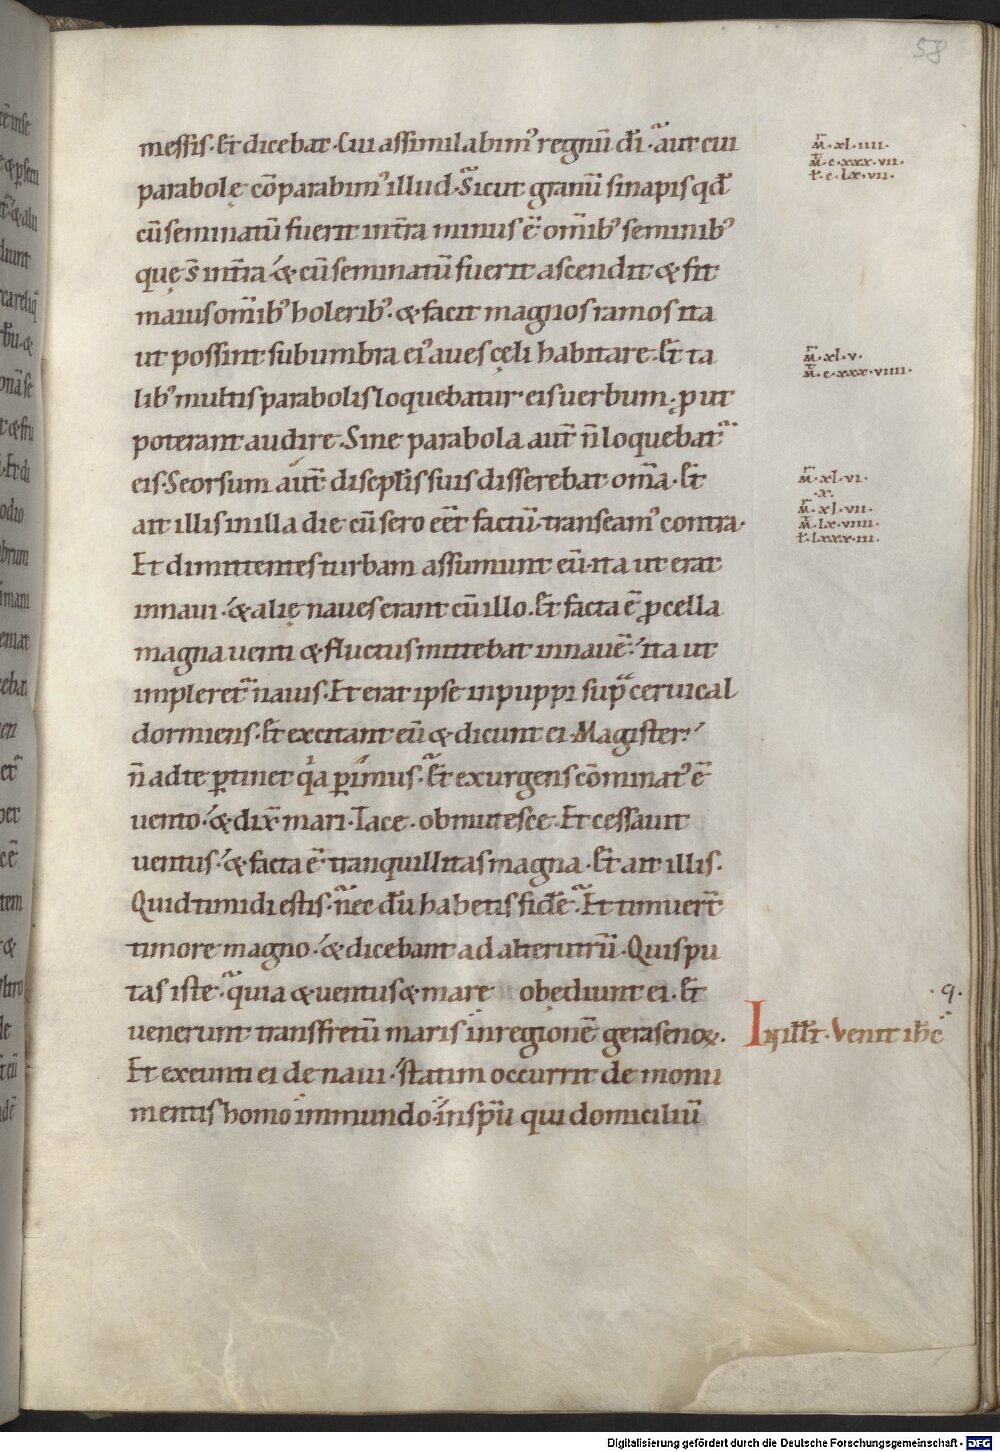 58
messis. Et dicebat. Cui assimilabim᾽ regnū dī. aut cui
parabolę cōparabim᾽ illud. Sicut granū sinapis qđ
cū seminatū fuerit in tr̄a minus ē om̄ib᾽ seminib᾽
quę s̄ in tr̄a. & cū seminatū fuerit ascendit & fit
maius om̄ib᾽ holerib᾽. & facit magnos ramos ita
ut possint sub umbra ei᾽ aues cęli habitare. Et ta
lib᾽ multis parabolis loquebatur eis uerbum. ꝓut
poterant audire. Sine parabola aut̄ n̄ loquebat᷑
eis. Seorsum aut̄ discipl̄is suis disserebat om̄a. Et
ait illis in illa die cū sero eēt factū. transeam᾽ contra.
Et dimittentes turbam assumunt eū. ita ut erat
in naui. & alię naues erant cū illo. Et facta ē ꝓcella
magna uenti & fluctus mittebat in nauē. ita ut
impleret᷑ nauis. Et erat ipse in puppi sup̄ ceruical
dormiens. Et excitant eū & dicunt ei. Magister.
n̄ ad te ꝑtinet qͥa ꝑimus. Et exurgens cōminat᾽ ē
uento. & dix̄ mari. Tace. obmutesce. Et cessauit
uentus. & facta ē tranquillitas magna. Et ait illis.
Quid timidi estis. nec dū habetis fidē. Et timuer̄t
timore magno. & dicebant ad alterutrū. Quis pu
tas iste. quia & uentus & mare obędiunt ei. Et
uenerunt trans fretū maris in regionē gerasenoꝝ.
Et exeunti ei de naui. statim occurrit de monu
mentis homo immundo in sp̄u qui domiciliū
m̄. xl. iiii.
m̄. c. xxx. vii.
l. c. lx. vii.
m̄. xl. v.
m̄. c. xxx. viiii.
m̄. xl. vi.
. x.
m̄. xl. vii.
m̄. lx. viiii.
l. lxxx. iii.
. 9.
In ill̄t. Venit ih̄c
Digitalisierung gefördert durch die Deutsche Forschungsgemeinschaft - DFG